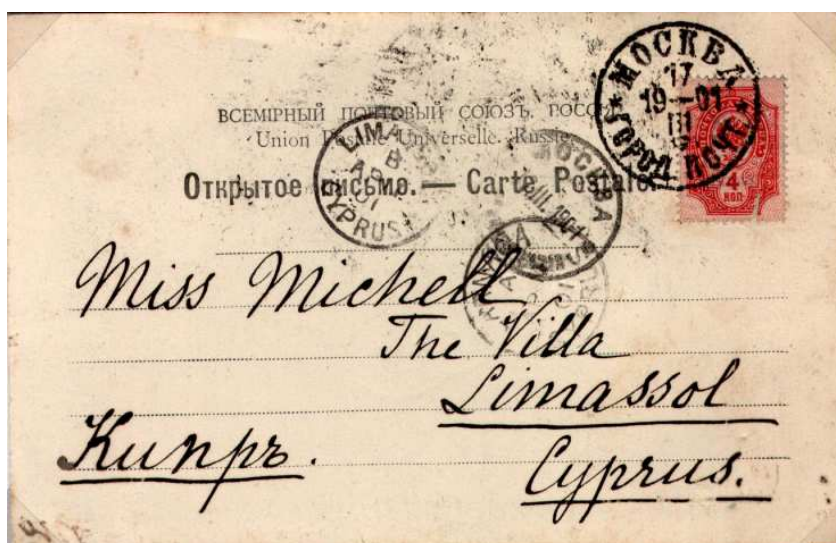 ВСЕМІРНЫЙ ПОЧТОВЫЙ СОЮЗЪ. РОССІЯ
Union Postale Universelle. Russie
Открытое письмо. — Carte Postale.
МОСКВА
17
19-01
III
ГОРОД. ПОЧТА
4
КОП.
LIMASSOL
B
AP
01
CYPRUS
МОСКВА
III 1901
Miss Michell
The Villa
Limassol
Кипръ.
Cyprus.